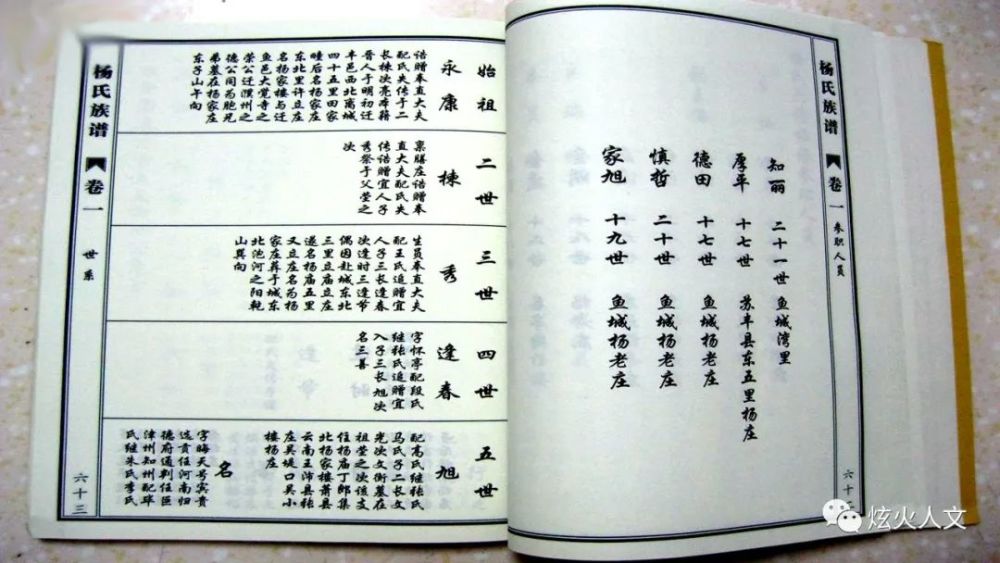 杨氏族谱
卷一
参职人员
六十二
知丽 二十一世 鱼城湾里
厚平 十七世 苏丰县东五里杨庄
德田 十七世 鱼城杨老庄
慎哲 二十世 鱼城杨老庄
家旭 十九世 鱼城杨老庄
始祖
永康
诰赠奉直大夫
配氏失传子二
长栋次亮本籍
晋人于明初迁
丰邑西北离城
四十五里田家
疃后名杨家庄
东北里许立庄
名杨家楼与迁
鱼邑大觉寺之
荣公迁濮州之
德公同为胞兄
弟墓在杨家庄
东子山午向
二世
栋
禀膳庄诰赠奉
直大夫配氏失
传诰赠宜人子
秀祭于父茔之
次
三世
秀
生员奉直大夫
配王氏追赠宜
人子三长逢春
次逢时三逢节
偶因赴城东北
三里立庙立庄
遂名杨庙五里
又立庄名为杨
家庄葬于城东
北泡河之阳乾
山巽向
四世
逢春
字怀亭配段氏
继张氏追赠宜
入子三长旭次
名三善
五世
旭
配高氏继张氏
马氏子二长文
光次文衡墓在
祖茔之次该支
住杨庙丁郎集
北杨家楼萧县
云南王沛县张
庄吴堤口吴小
楼杨庄
名
字晦天号宾贵
选贡任河南归
德府通判任
漳州知州配毕
氏继朱氏李氏
杨氏族谱
卷一
世系
六十三
炫火人文